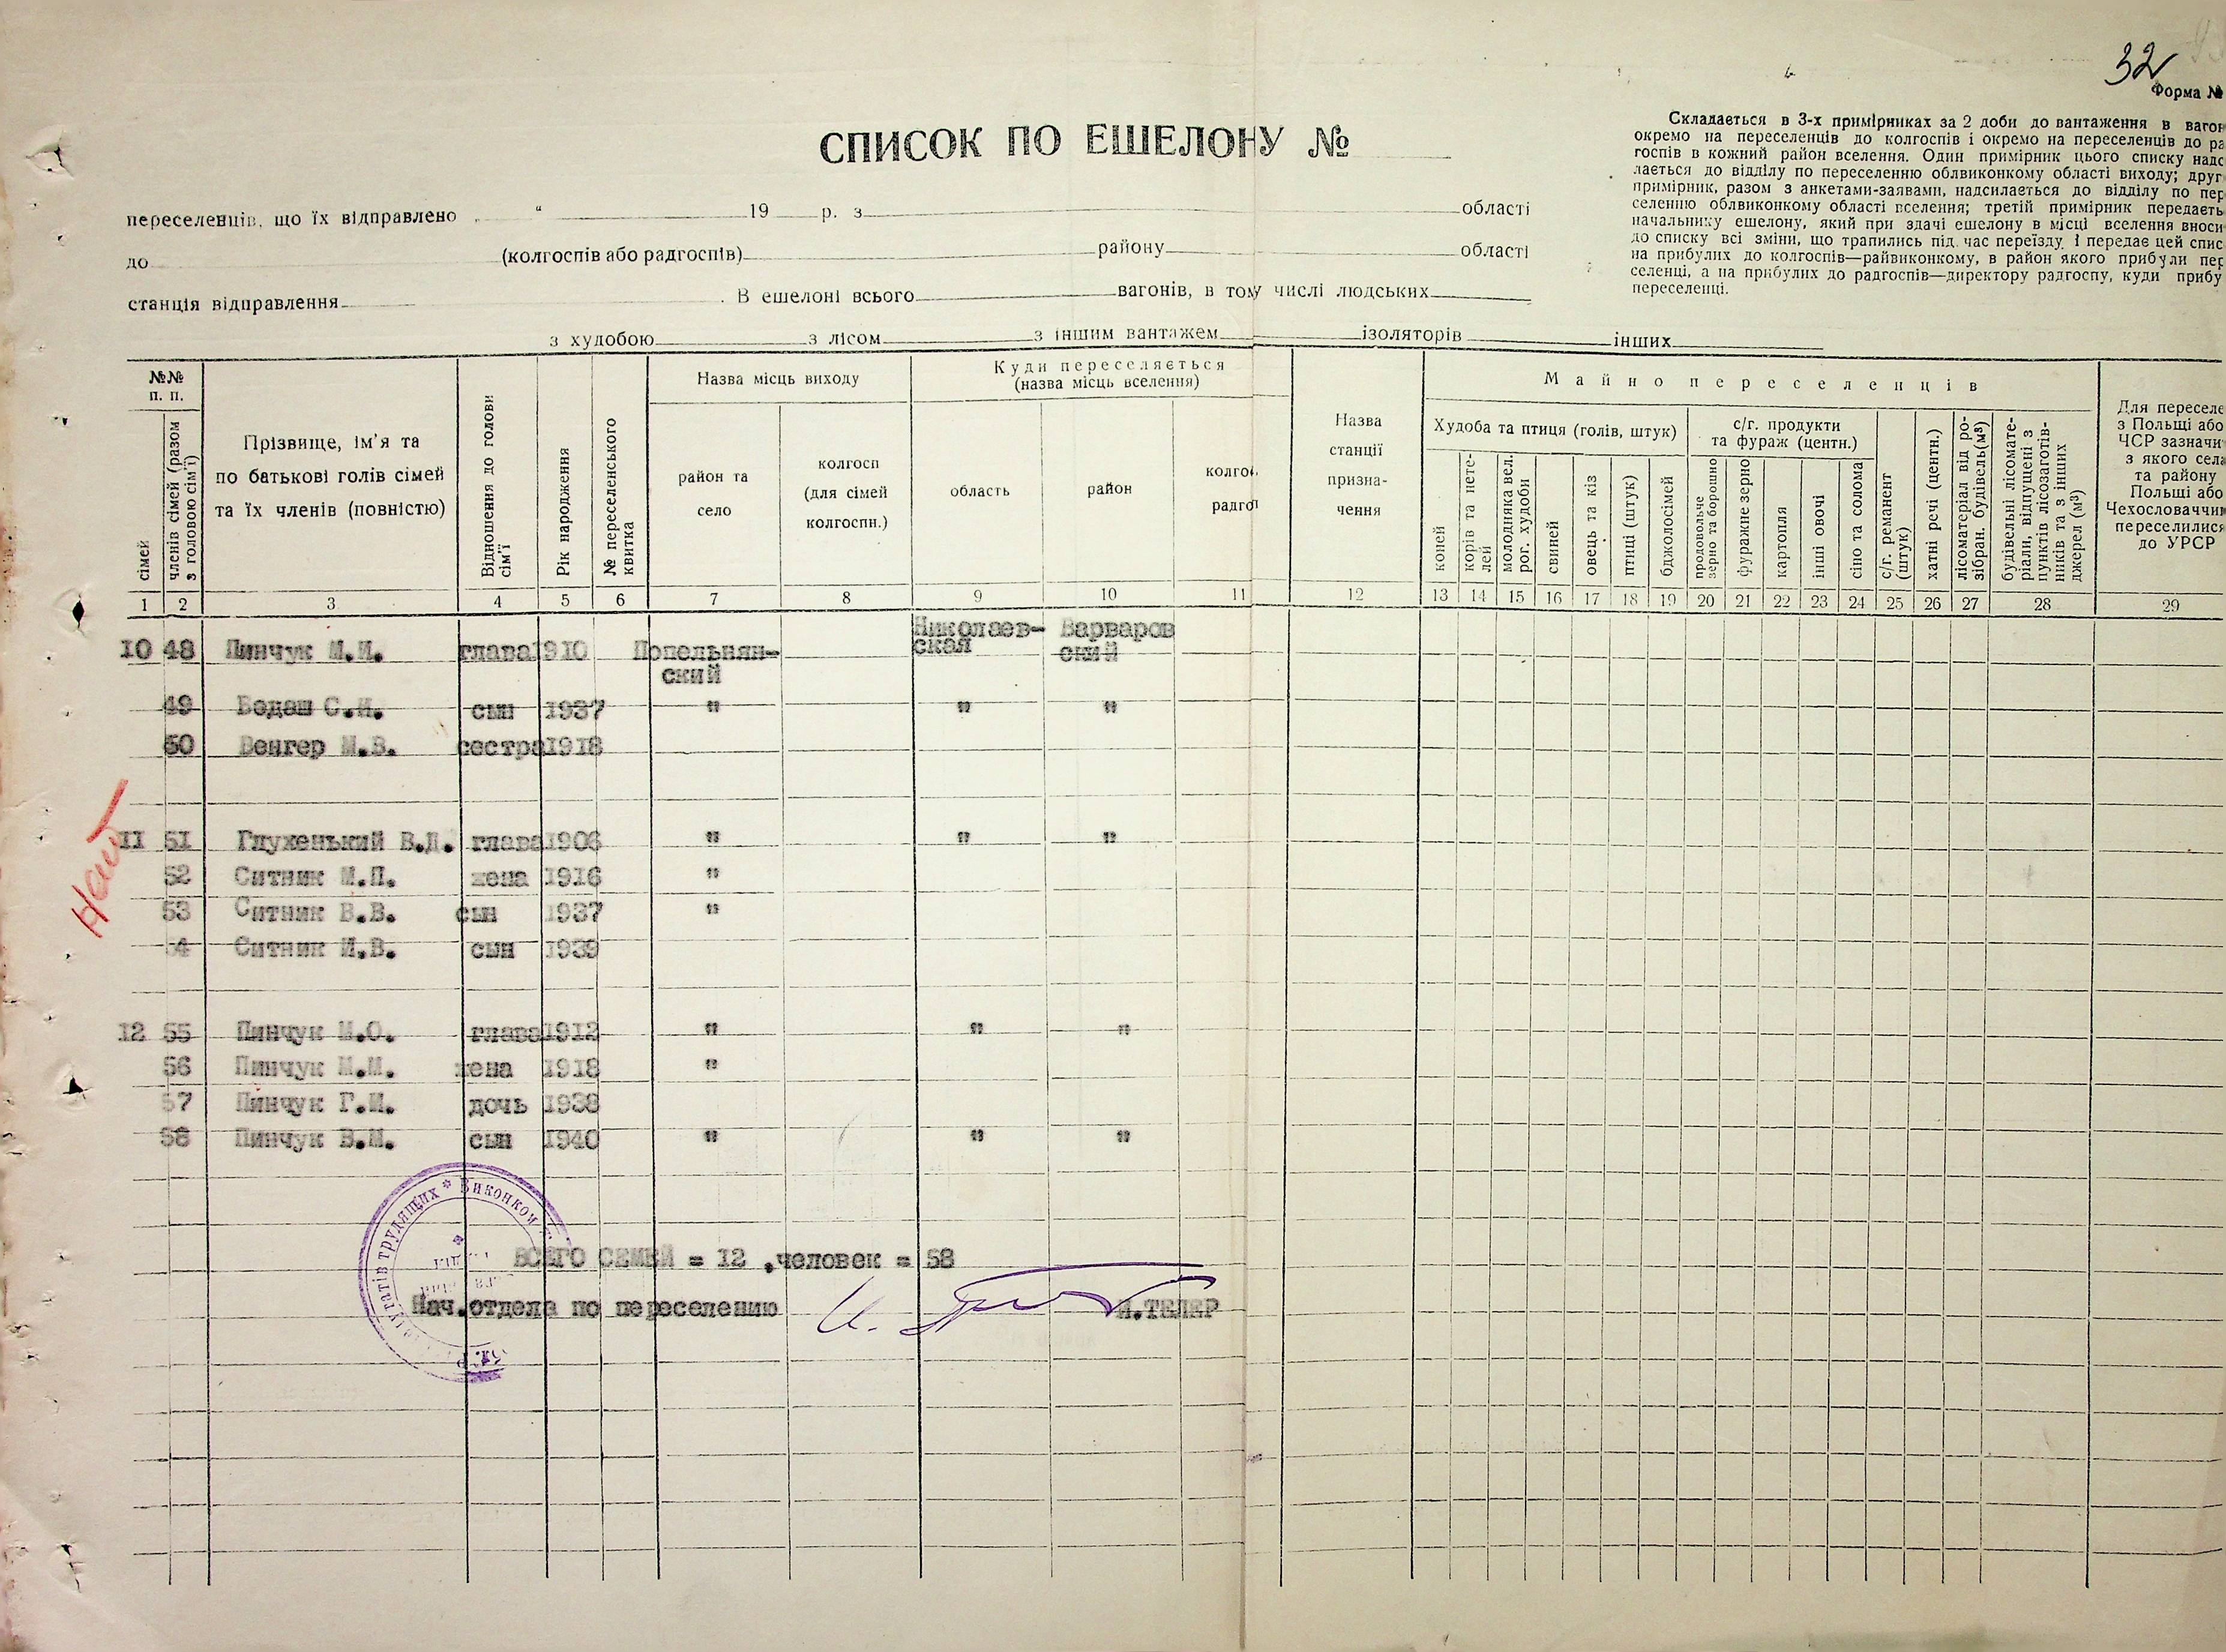 32
Форма №
СПИСОК ПО ЕШЕЛОНУ №
Складається в 3-х примірниках за 2 доби до вантаження в вагон
окремо на переселенців до колгоспів і окремо на переселенців до ра
госпів в кожний район вселення. Один примірник цього списку надс
лається до відділу по переселенню облвиконкому області виходу; друг
примірник, разом з анкетами-заявами, надсилається до відділу по пер
селенню облвиконкому області вселення; третій примірник передаєть
начальнику ешелону, який при здачі ешелону в місці вселення вноси
до списку всі зміни, що трапились під час переїзду і передає цей спис
на прибулих до колгоспів—райвиконкому, в район якого прибули пер
селенці, а на прибулих до радгоспів—директору радгоспу, куди прибу
переселенці.
переселенців, що їх відправлено „ “ 19 р. з області
до (колгоспів або радгоспів) району області
станція відправлення . В ешелоні всього вагонів, в тому числі людських
з худобою з лісом з іншим вантажем ізоляторів інших
№№ п. п.
сімей
членів сімей (разом з головою сім'ї)
Прізвище, ім'я та
по батькові голів сімей
та їх членів (повністю)
Відношення до голови сім'ї
Рік народження
№ переселенського квитка
Назва місць виходу
район та
село
колгосп
(для сімей
колгоспн.)
Куди переселяється
(назва місць вселення)
область
район
колго
радго
Назва
станції
призна-
чення
Майно переселенців
Худоба та птиця (голів, штук)
коней
корів та нете-
лей
молодняка вел.
рог. худоби
свиней
овець та кіз
птиці (штук)
бджолосімей
с/г. продукти
та фураж (центн.)
продовольче
зерно та борошно
фуражне зерно
картопля
інші овочі
сіно та солома
с/г. реманент
(штук)
хатні речі (центн.)
лісоматеріал від ро-
зібран. будівель(м³)
будівельні лісомате-
ріали, відпущені з
пунктів лісозаготів-
ників та з інших
джерел (м³)
Для переселе
з Польщі або
ЧСР зазначи
з якого села
та району
Польщі або
Чехословаччин
переселилися
до УРСР
1 2 3 4 5 6 7 8 9 10 11 12 13 14 15 16 17 18 19 20 21 22 23 24 25 26 27 28 29
10 48 Пинчук М.И. глава 1910 Попельнян-
ский Николаев-
ская Варваров
ский
49 Бодаш С.И. сын 1937 " " "
50 Венгер М.В. сестра 1918
11 51 Глухенький В.Д. глава 1906 " " "
52 Ситник М.П. жена 1916 "
53 Ситник В.В. сын 1937 "
4 Ситник И.В. сын 1939
12 55 Пинчук М.О. глава 1912 " " "
56 Пинчук М.М. жена 1918 "
57 Пинчук Г.М. дочь 1938
58 Пинчук В.М. сын 1940 " " "
трудящих * Виконком
ВСЕГО СЕМЕЙ = 12 , человек = 58
Нач.отдела по переселению И.ТЕЛЕР